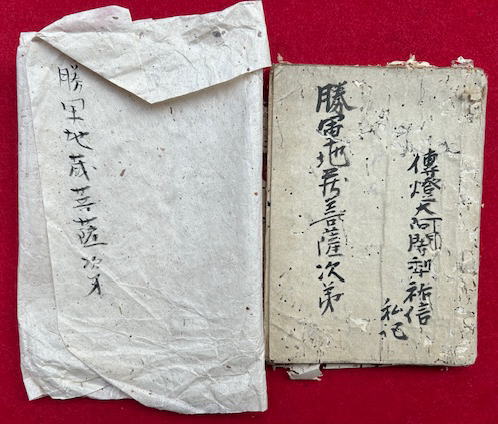 勝軍地蔵菩薩次第
傳燈大阿闍梨祐信
私記
勝軍地蔵菩薩次第